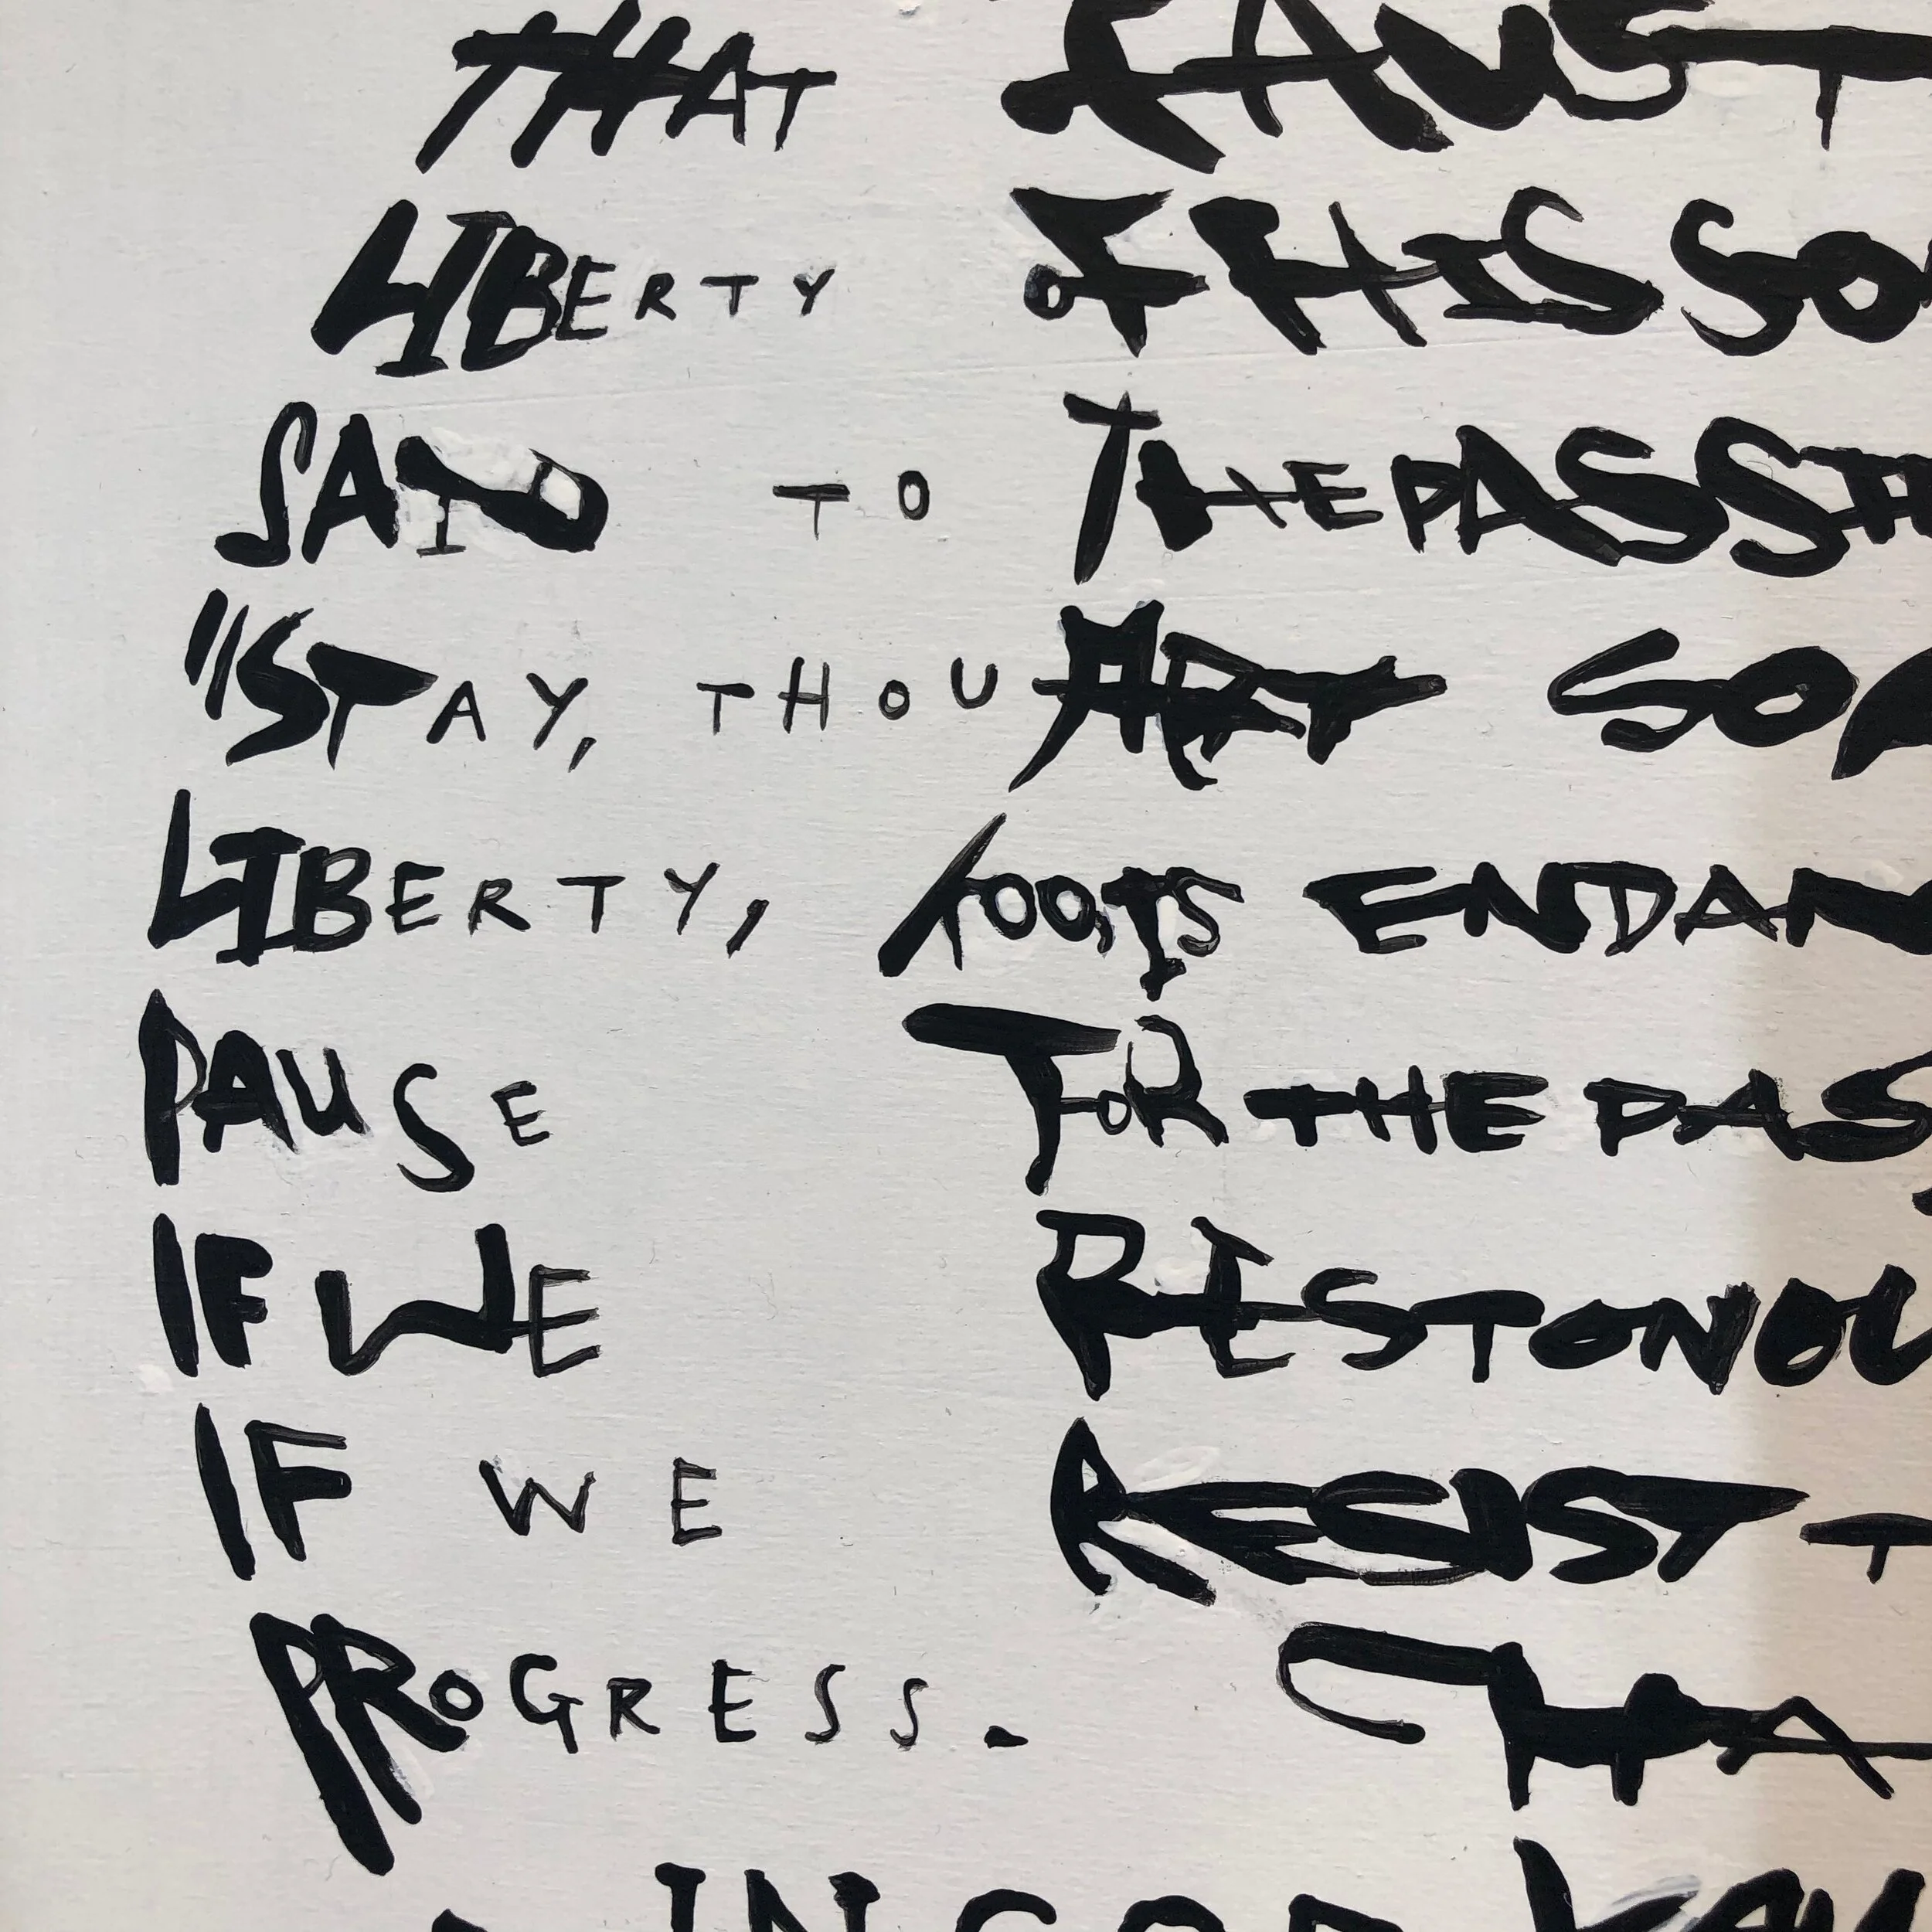 THAT FAUST
LIBERTY OF HIS SO
SAID TO THE PASSI
"STAY, THOU ART SO
LIBERTY, TOO, IS ENDAN
PAUSE FOR THE PAS
IF WE REST ON OU
IF WE RESIST T
PROGRESS. CHA